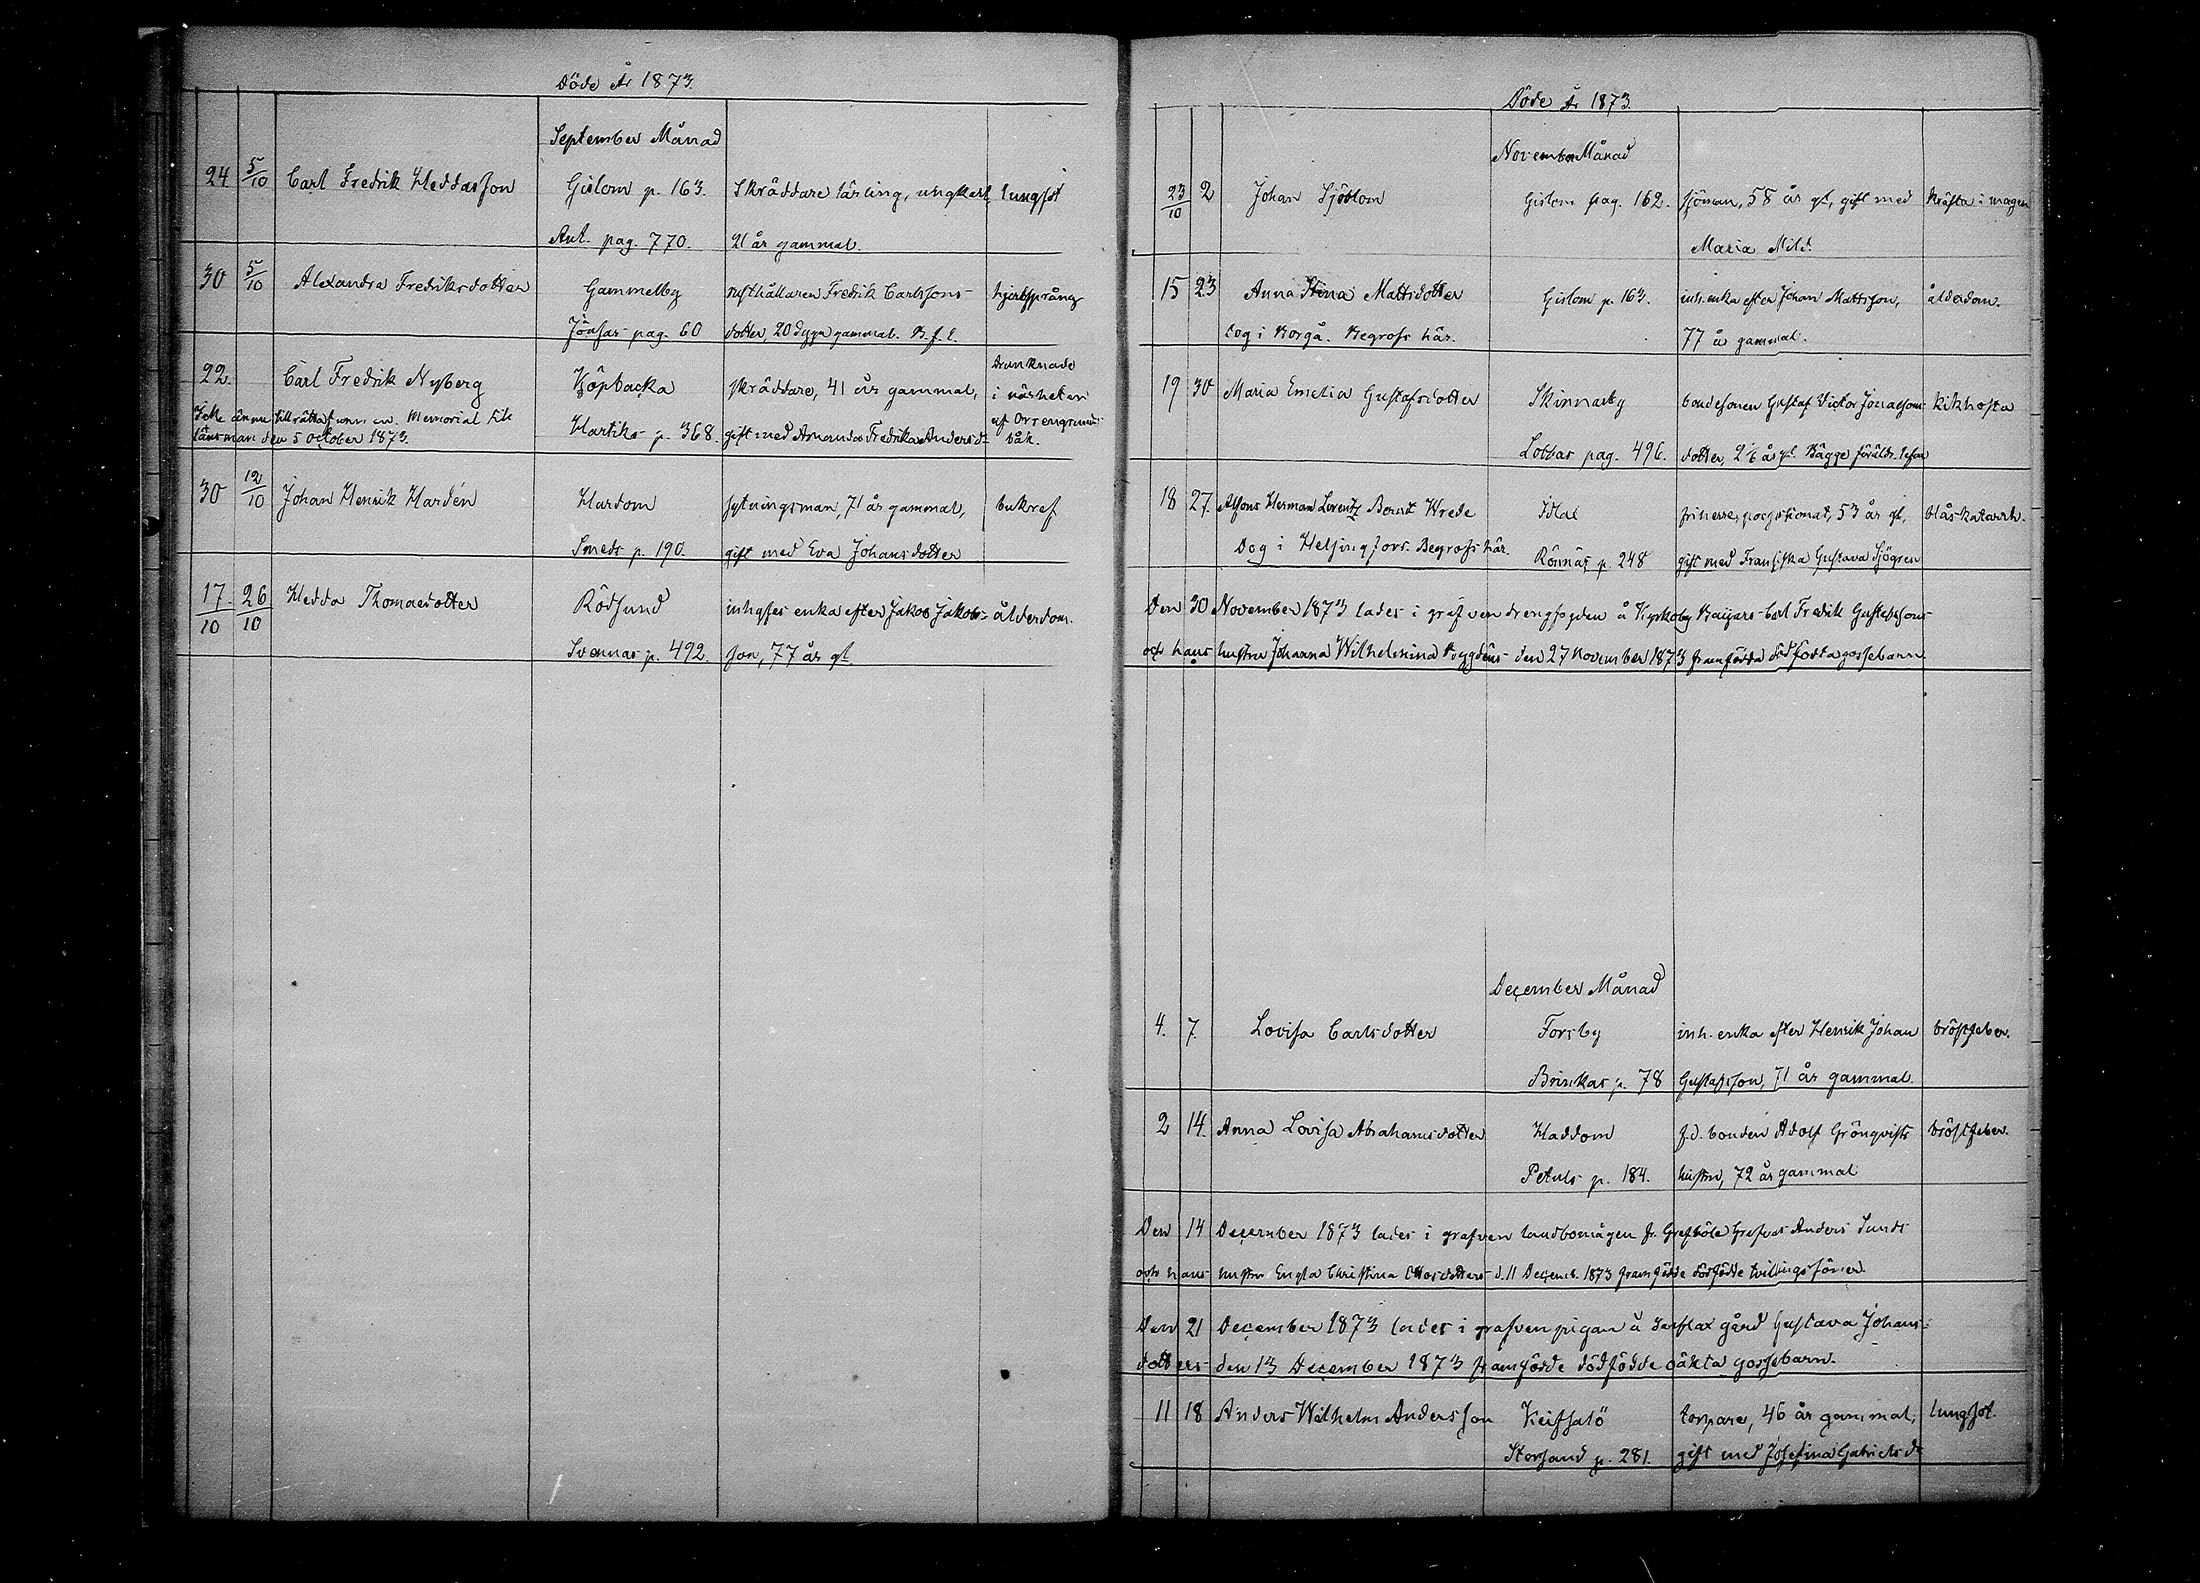 Döde År 1873.
September Månad
24 5/10 Carl Fredrik Heddasson Gislom p. 163. Skräddare lärling, ungkarl, lungsot
Ant. pag. 770. 21 år gammal.
30 5/10 Alexandra Fredriksdotter Gammelby rusthållaren Fredrik Carlssons hjertsprång
Jönsas pag. 60 dotter, 20 dygn gammal. B. f. l.
22. Carl Fredrik Nyberg Köpbacka skräddare, 41 år gammal, drunknade i närheten
Icke ännu tillrättafunnen. Memorial till
länsman den 5 october 1873. Hartiks p. 368. gift med Amanda Fredrika Andersd:r af Orrengrunds båk.
30 12/10 Johan Henrik Hardén Hardom sytningsman, 71 år gammal, bukref
Smeds p. 190. gift med Eva Johansdotter
17/10 26/10 Hedda Thomasdotter Rödsund inhyses enka efter Jakob Jakobs- ålderdom.
Svennas p. 492. son, 77 år gl.
Döde År 1873.
November Månad
23/10 2 Johan Sjöblom Gislom pag. 162. sjöman, 58 år gl, gift med kräfta i magen
Maria Mild.
15 23 Anna Stina Mattsdotter Gislom p. 163. inh. enka efter Johan Mattsson, ålderdom.
Dog i Borgå. Begrofs här. 77 år gammal.
19 30 Maria Emelia Gustafsdotter Skinnarby bondesonen Gustaf Victor Jonassons kikhosta
Lobbas pag. 496. dotter, 2 1/6 år gl. Bägge föräldr. lefva
18 27. Alfons Herman Lorentz Berndt Wrede Idlax friherre, possessionat, 53 år gl, blåskatarrh.
Dog i Helsingfors. Begrofs här. Rönnäs p. 248 gift med Fransiska Gustava Sjögren
Den 30 November 1873 lades i grafven drengfogden å Kyrkoby Baijars Carl Fredrik Gustafssons
och hans hustru Johanna Wilhelmina Bygdéns den 27 November 1873 framfödda dödfödda gossebarn.
December Månad
4. 7. Lovisa Carlsdotter Forsby inh. enka efter Henrik Johan bröstfeber.
Brinkas p. 78 Gustafsson, 71 år gammal.
2 14. Anna Lovisa Abrahamsdotter Haddom f.d. bonden Adolf Grönqvists bröstfeber.
Petals p. 184. hustru, 72 år gammal
Den 14 December 1873 lades i grafven landbomågen fr. Grefböle Grefvas Anders Sunds
och hans hustru Engla Christina Ottosdotters d. 11 Decemb. 1873 framfödde dödfödde tvillingssöner.
Den 21 December 1873 lades i grafven pigan å Sarflax gård Gustava Johans-
dotters den 13 December 1873 framfödde dödfödde oäkta gossebarn.
11 18 Anders Wilhelm Andersson Keitsalö torpare, 46 år gammal, lungsot.
Storsand p. 281. gift med Josefina Gabrielsd:r